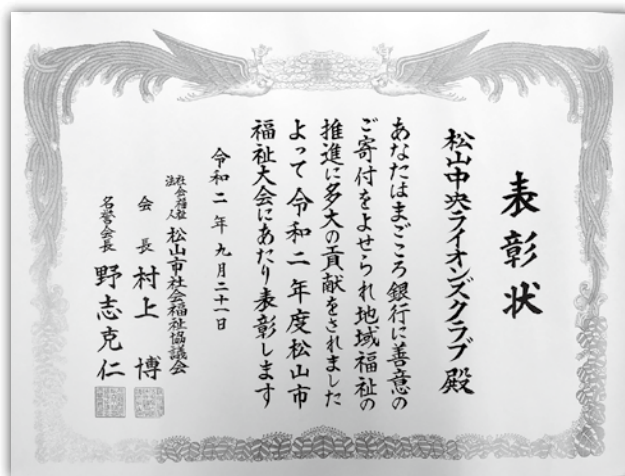 表彰状
松山中央ライオンズクラブ 殿
あなたはまごころ銀行に善意の
ご寄付をよせられ地域福祉の
推進に多大の貢献をされました
よって令和二年度松山市
福祉大会にあたり表彰します
令和二年九月二十一日
社会福祉法人 松山市社会福祉協議会
会長 村上 博
名誉会長 野志克仁